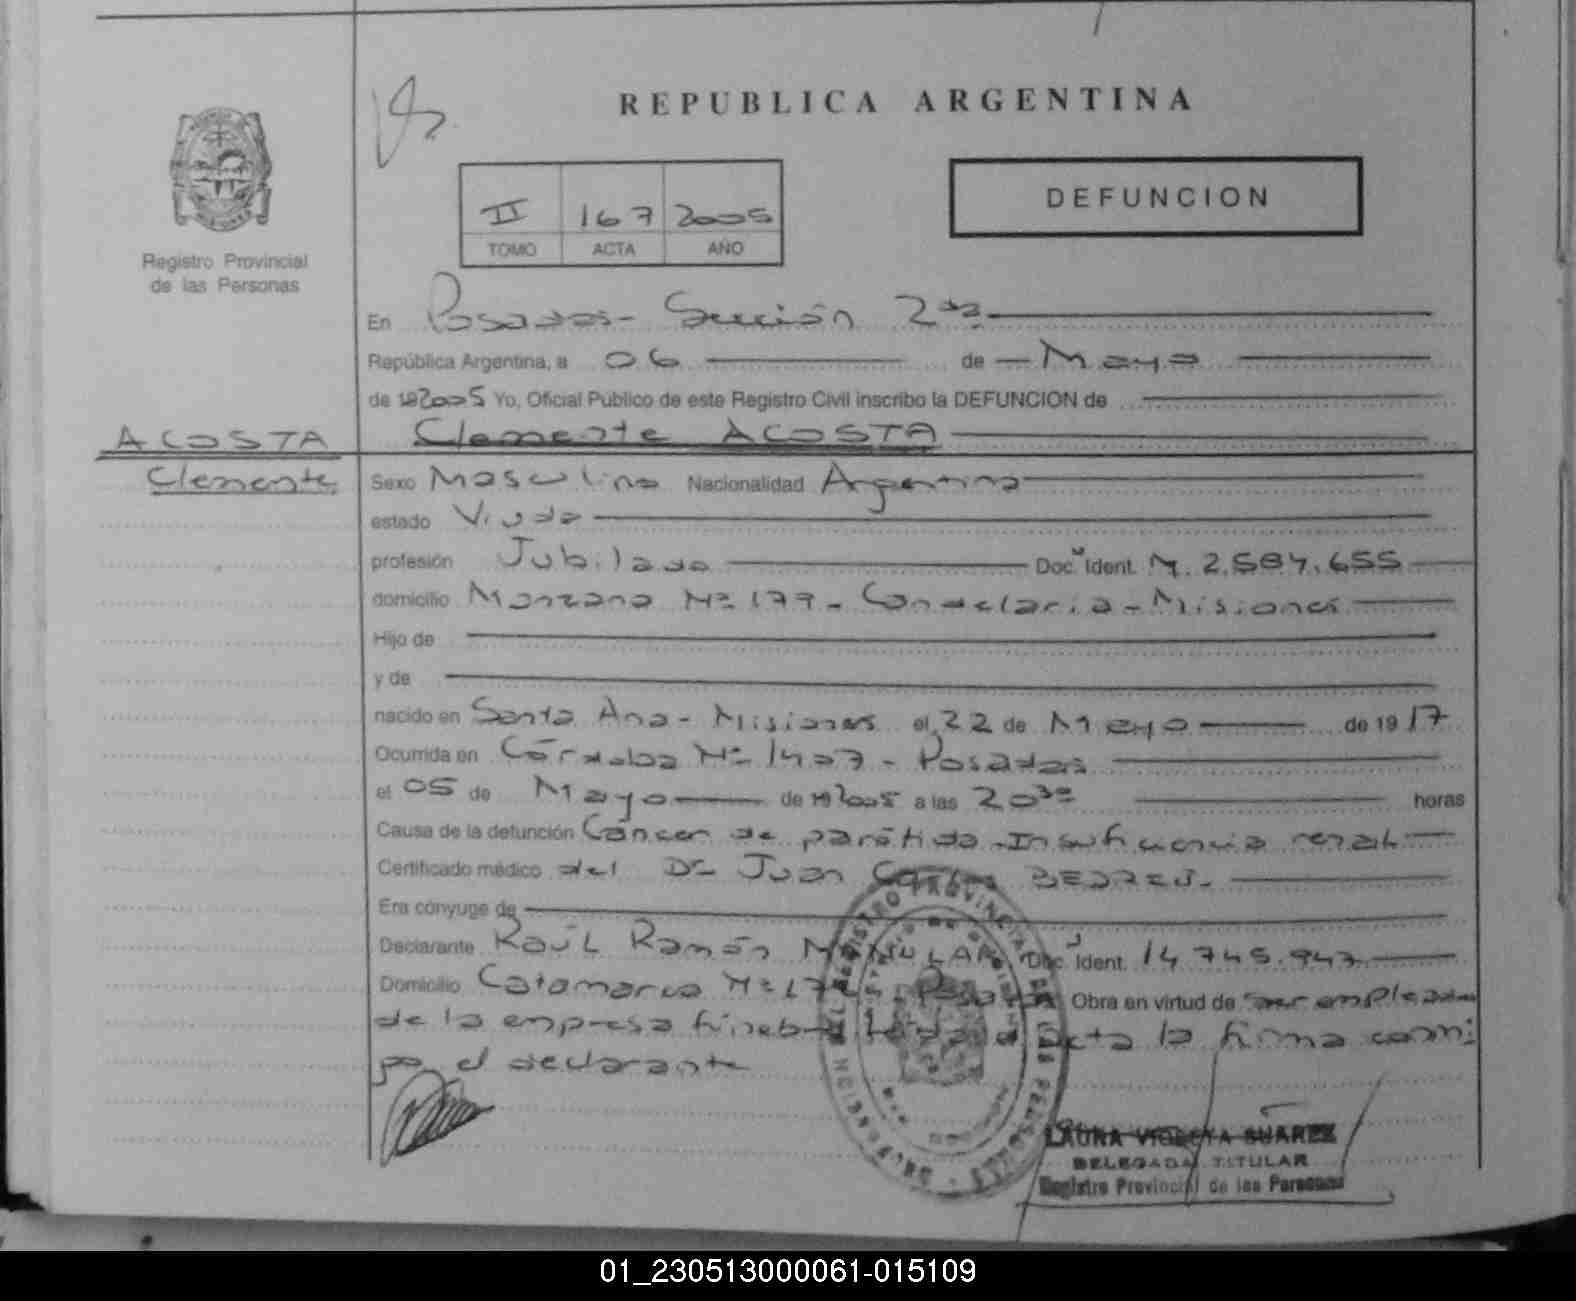 REPUBLICA ARGENTINA
DEFUNCION
II 167 2005
TOMO ACTA AÑO
Registro Provincial
de las Personas
En Posadas- Sección 2da
República Argentina, a 06 de Mayo
de 192005 Yo, Oficial Público de este Registro Civil inscribo la DEFUNCION de
ACOSTA Clemente ACOSTA
Clemente
Sexo Masculino Nacionalidad Argentina
estado Viudo
profesión Jubilado Doc. Ident. M. 2.584.655
domicilio Manzana Nº 177- Candelaria-Misiones
Hijo de
y de
nacido en Santa Ana- Misiones el 22 de Mayo de 1917
Ocurrida en Córdoba Nº 1407- Posadas
el 05 de Mayo de 192005 a las 20 30 horas
Causa de la defunción Cáncer de parótida-Insuficiencia renal
Certificado médico del Dr Juan Carlos
Era cónyuge de
Declarante Raúl Ramón Doc. Ident. 14.745.947
Domicilio Catamarca Nº Posadas Obra en virtud de ser empleado
de la empresa fúnebre acta la firma conmi
go el declarante
LAURA VIOLETA SUAREZ
DELEGADA TITULAR
Registro Provincial de las Personas
01_230513000061-015109